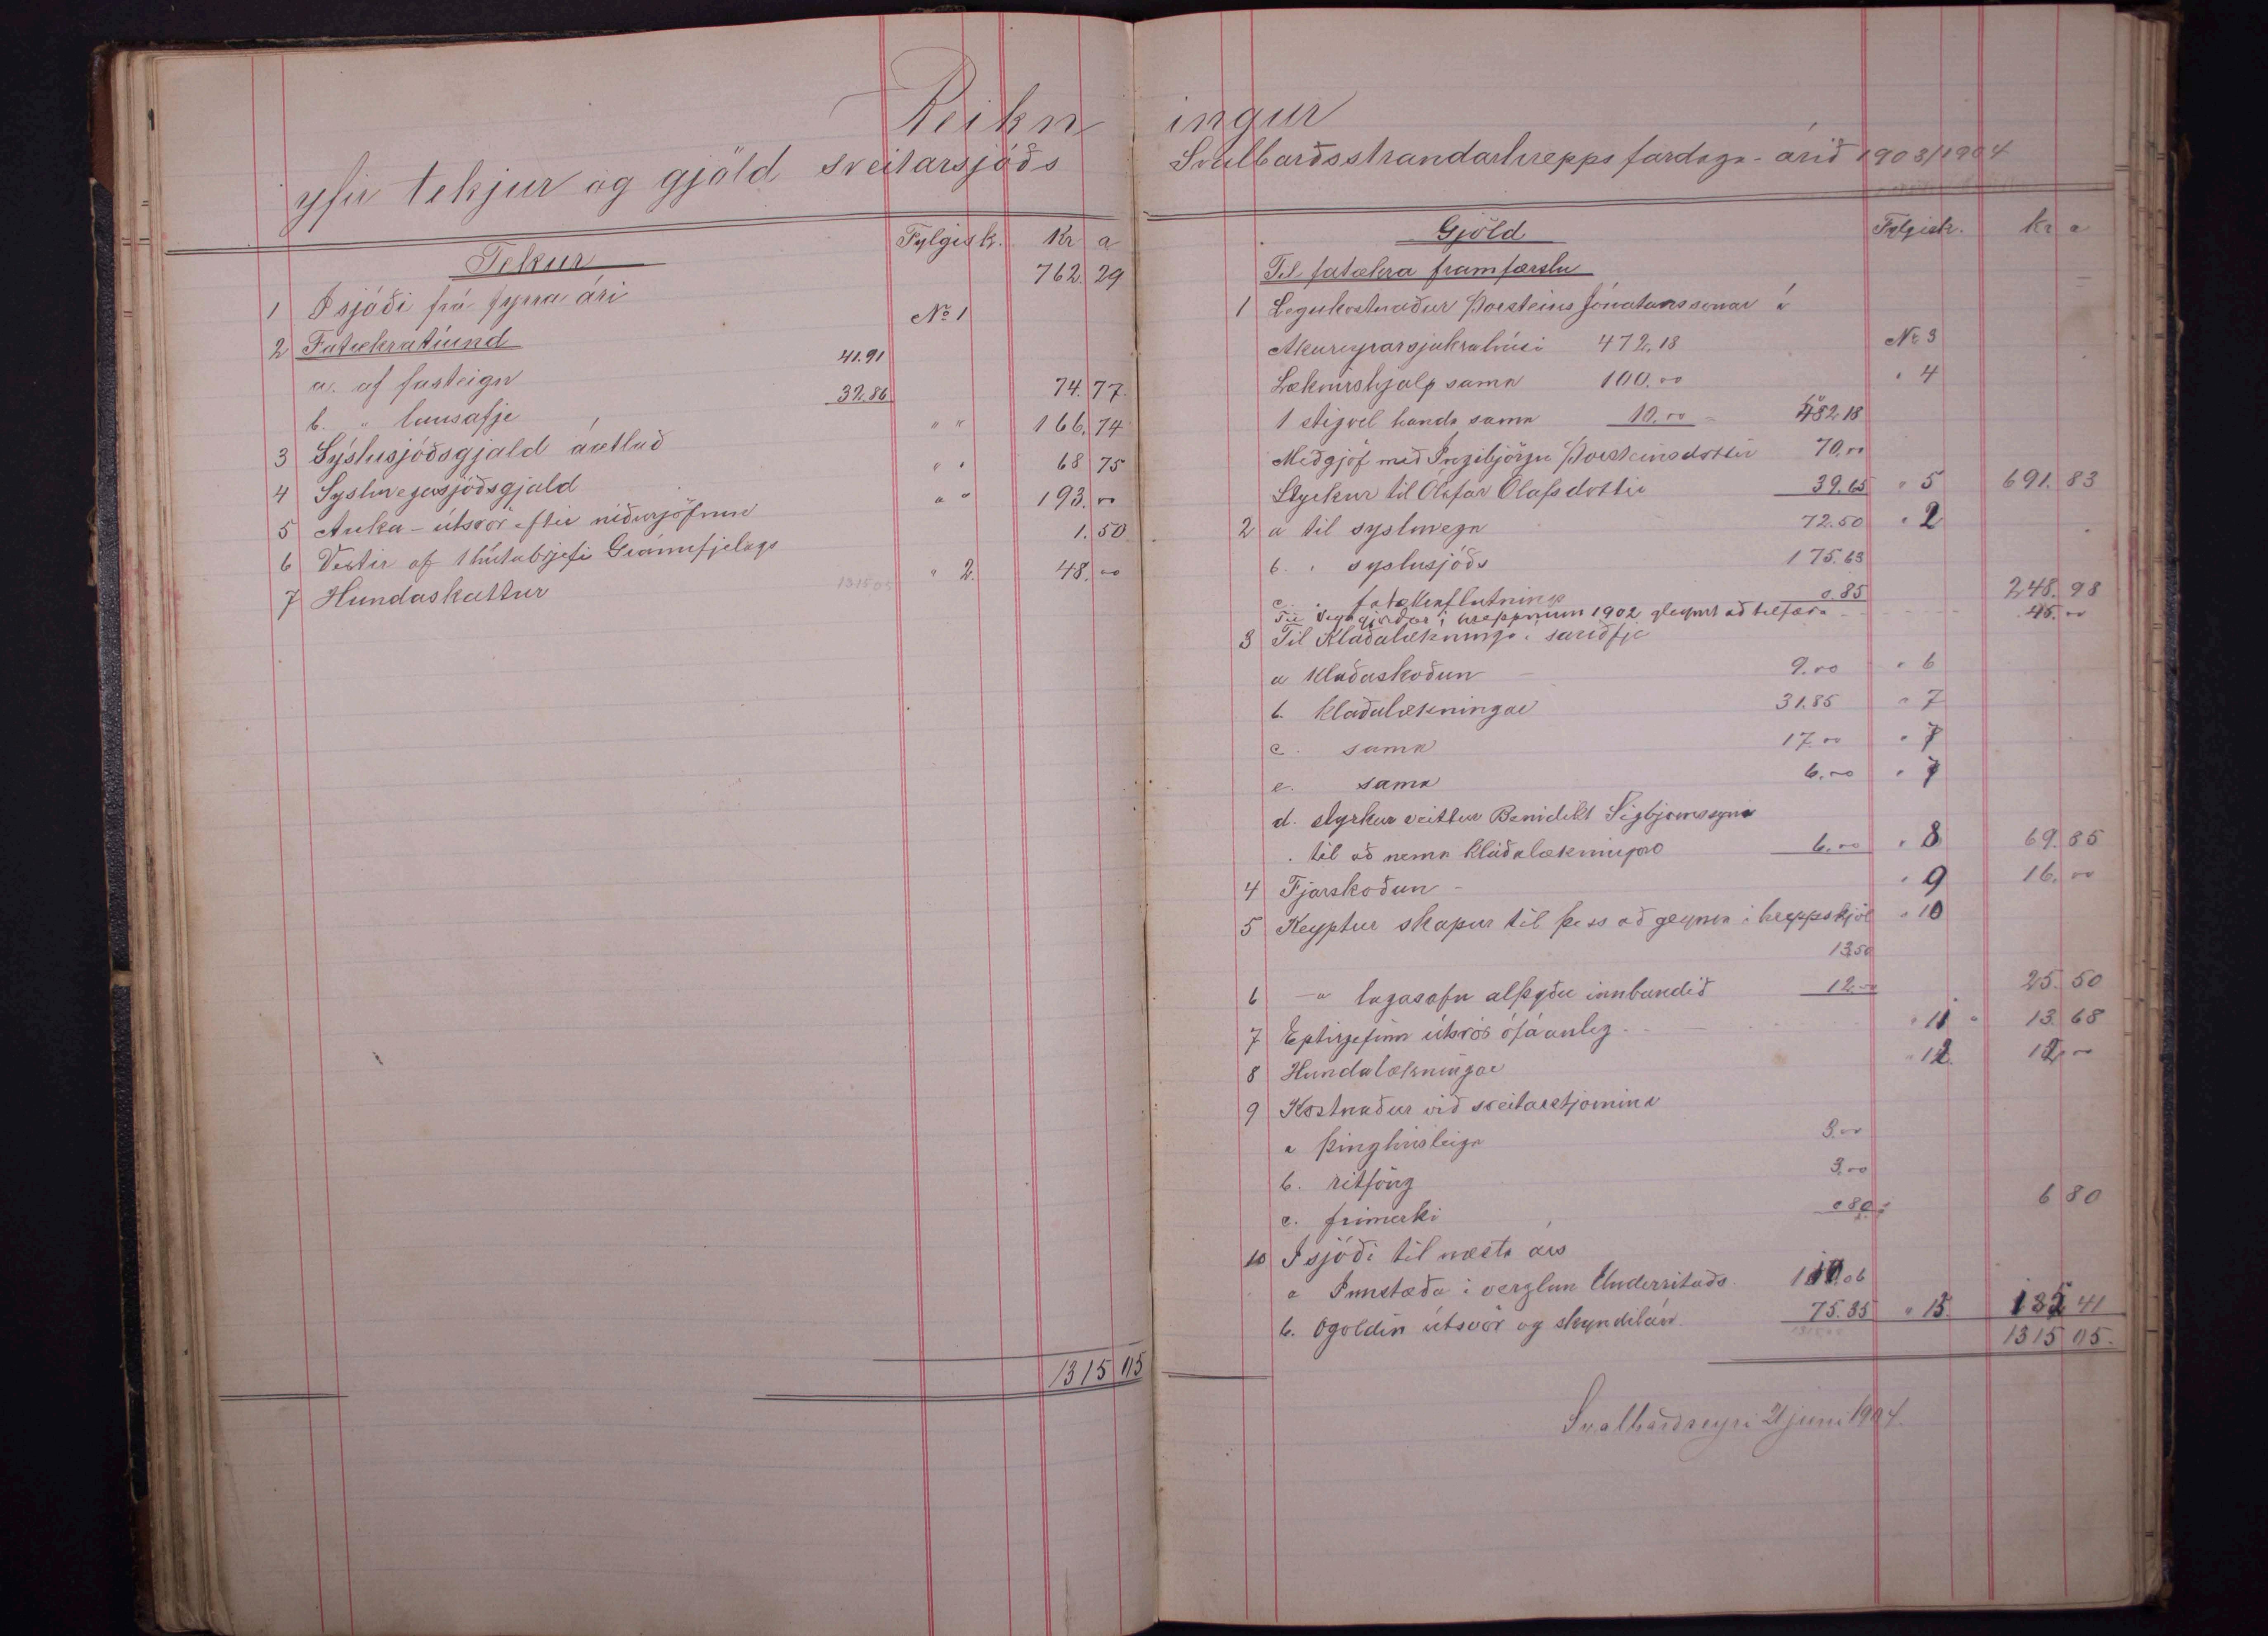 Reikningur
yfir tekjur og gjöld sveitarsjóðs Svalbarðsstrandarhrepps fardaga-árið 1903/1904
Tekur Fylgisk. Kr a
1 Í sjóði frá fyrra ári 762.29
2 Fatækratíund No 1
a. af fasteign 41.91
b. " lausafje 32.86 74.77
3 Sýslusjóðsgjald áætlað " " 166.74
4 Sysluvegasjóðsgjald " " 68 75
5 Auka-útsvör eftir niðurjöfnun " " 193.00
6 Vextir af 1 hlutabrjefi Gránufjelags 1.50
7 Hundaskattur 131505 " 2. 48.00
1315 05
Gjöld Fylgisk. kr a
Til fatækra framfærslu
1 Legukostnaður Þorsteins Jónatanssonar á
Akureyrarsjukrahúsi 472,18 No 3
Læknishjalp sama 100.00 " 4
1 stigvel handa sama 10.00 582.18
Meðgjöf með Ingibjörgu Þorsteinsdottir 70,00
Styrkur til Ólafar Ólafsdottir 39.65 " 5 691.83
2 a til sysluvega 72.50 " 2
b. " syslusjóðs 175.63
c. " fatækraflutnings 0.85 248.98
Til vegagjörðar i hreppnum 1902 gleymst að tilfæra 45.00
3 Til Kláðalækninga i sauðfje
a kláðaskoðun 9.00 " 6
b. kláðalækningar 31.85 " 7
c. sama 17.00 " 7
e. sama 6.00 " 7
d. styrkur veittur Benidikt Sigbjornssyni
til að nema kláðalækningar 6.00 " 8 69.85
4 Fjarskoðun " 9 16.00
5 Keyptur skapur til þess að geyma i hreppskjöl " 10
13.50
6 —"— lagasafn alþyðu innbundið 12.00 25.50
7 Eptirgefinn útsvör ófáanleg " 11 13 68
8 Hundalækningar " 12. 12.00
9 Kostnaður við sveitarstjornina
a þinghúsleiga 3.00
b. ritföng 3.00
c. frimerki 0 80 6 80
10 Í sjóði til næsta árs
a Innstæða i verzlun Undirritaðs 110.06
b. Ogoldin útsvör og skyndilán 75.35 " 13. 185 41
1315 05.
Svalbarðseyri 21 juni 1904.